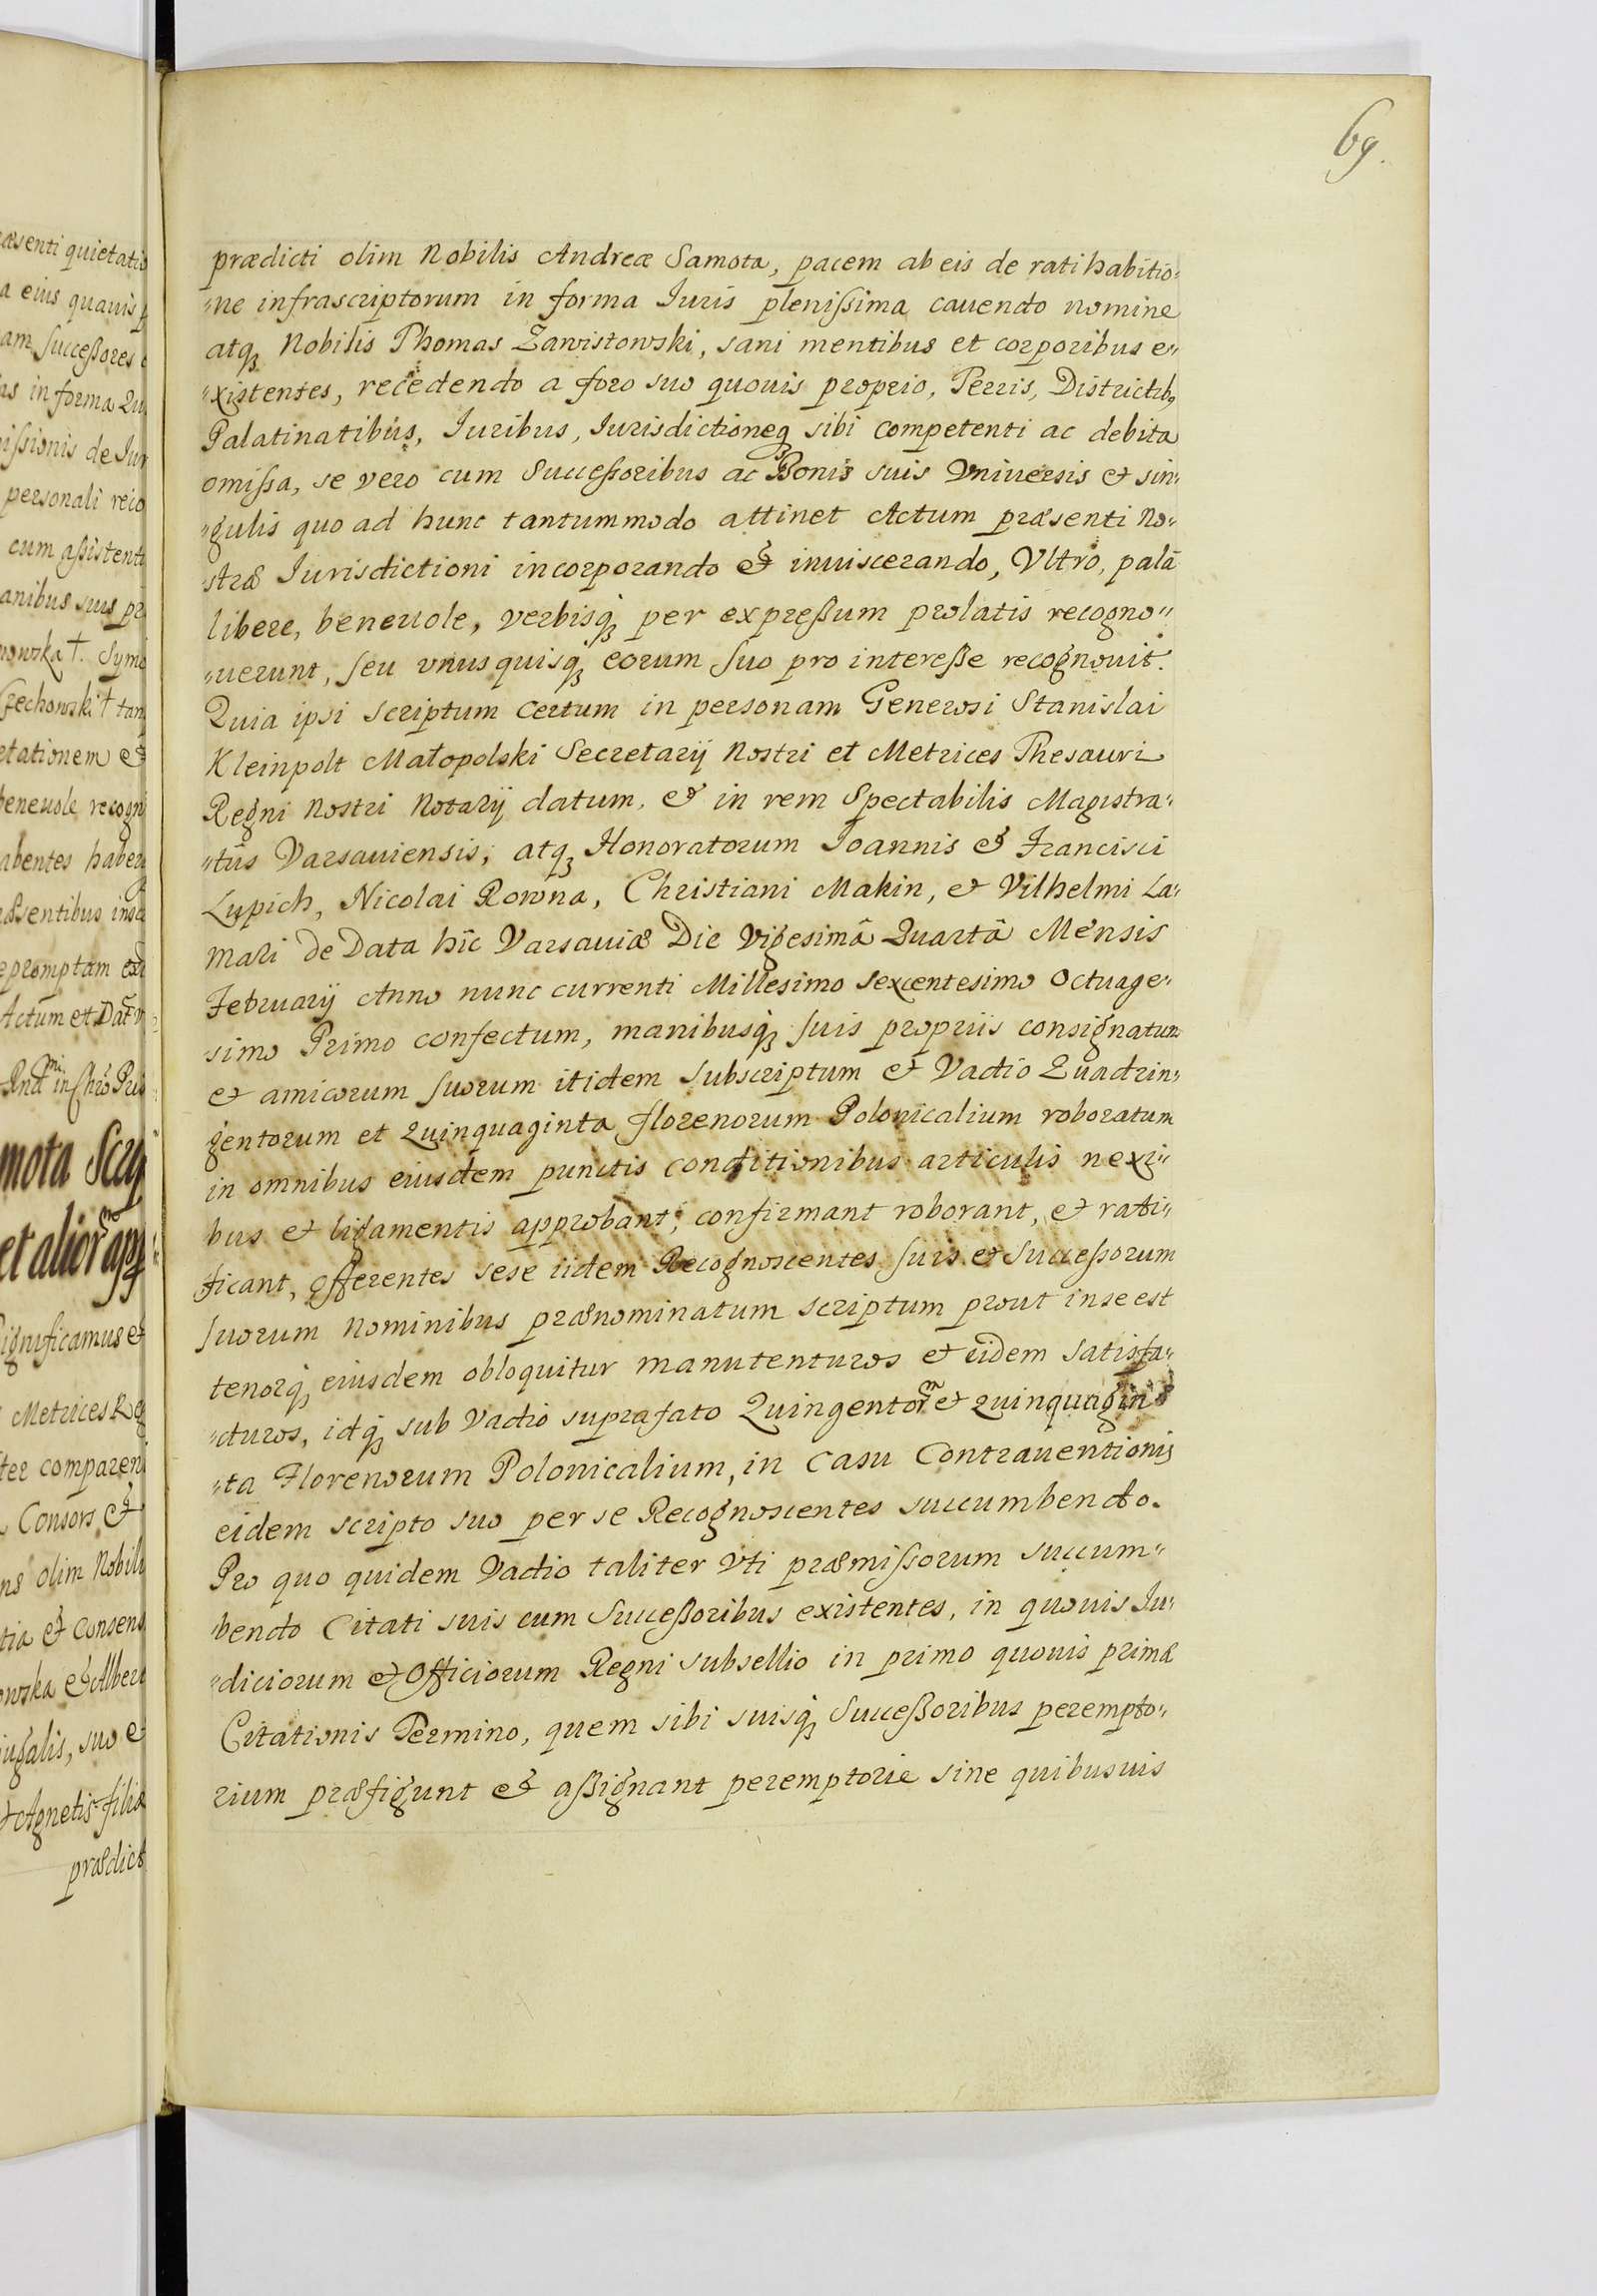 69.
prædicti olim Nobilis Andreæ Samota, pacem ab eis de ratihabitio„
„ne infrascriptorum in forma Iuris plenißima cauendo nomine
atq₃ Nobilis Thomas Zawistowski, sani mentibus et corporibus e„
„xistentes, recedendo a foro suo quouis proprio, Terris, Districtib₉
Palatinatibus, Iuribus, Iurisdictioneq₃ sibi competenti ac debita
omißa, se vero cum Succeßoribus ac Bonis suis Vniuersis et sin„
„gulis quo ad hunc tantummodo attinet Actum præsenti No„
stræ Iurisdictioni incorporando et inuiscerando, Vltro, palā
libere, beneuole, verbisq₃ per expreßum prolatis recogno„
„uerunt, seu vnusquisq₃ eorum suo pro intereße recognouit.
Quia ipsi scriptum certum in personam Generosi Stanislai
Kleinpolt Małopolski Secretarij Nostri et Metrices Thesauri
Regni Nostri Notarij datum, et in rem Spectabilis Magistra„
„tûs Varsauiensis, atq₃ Honoratorum Ioannis et Francisci
Lupich, Nicolai Rowna, Christiani Makin, et Vilhelmi La„
mari de Data hîc Varsauiæ Die Vigesimâ Quartâ Mensis
Februarij Anno nunc currenti Millesimo Sexcentesimo Octuage„
simo Primo confectum, manibusq₃ suis propriis consignatum
et amicorum suorum itidem subscriptum et Vadio Quadrin„
gentorum et Quinquaginta florenorum Polonicalium roboratum
in omnibus eiusdem punctis conditionibus articulis nexi„
bus et ligamentis approbant, confirmant roborant, et rati„
ficant, offerentes sese iidem Recognoscentes suis et Succeßorum
suorum Nominibus prænominatum scriptum prout in se est
tenorq₃ eiusdem obloquitur manutenturos et eidem satisfa„
„cturos, idq₃ sub Vadio suprafato Quingentorm et quinquagin„
„ta Florenorum Polonicalium, in Casu Contrauentionis
eidem scripto suo per se Recognoscentes succumbendo.
Pro quo quidem Vadio taliter Vti præmißorum succum„
bendo Citati suis cum Succeßoribus existentes, in quouis Iu„
„diciorum et Officiorum Regni subsellio in primo quouis primæ
Citationis Termino, quem sibi suisq₃ Succeßoribus perempto„
rium præfigunt et aßignant peremptorie sine quibusuis